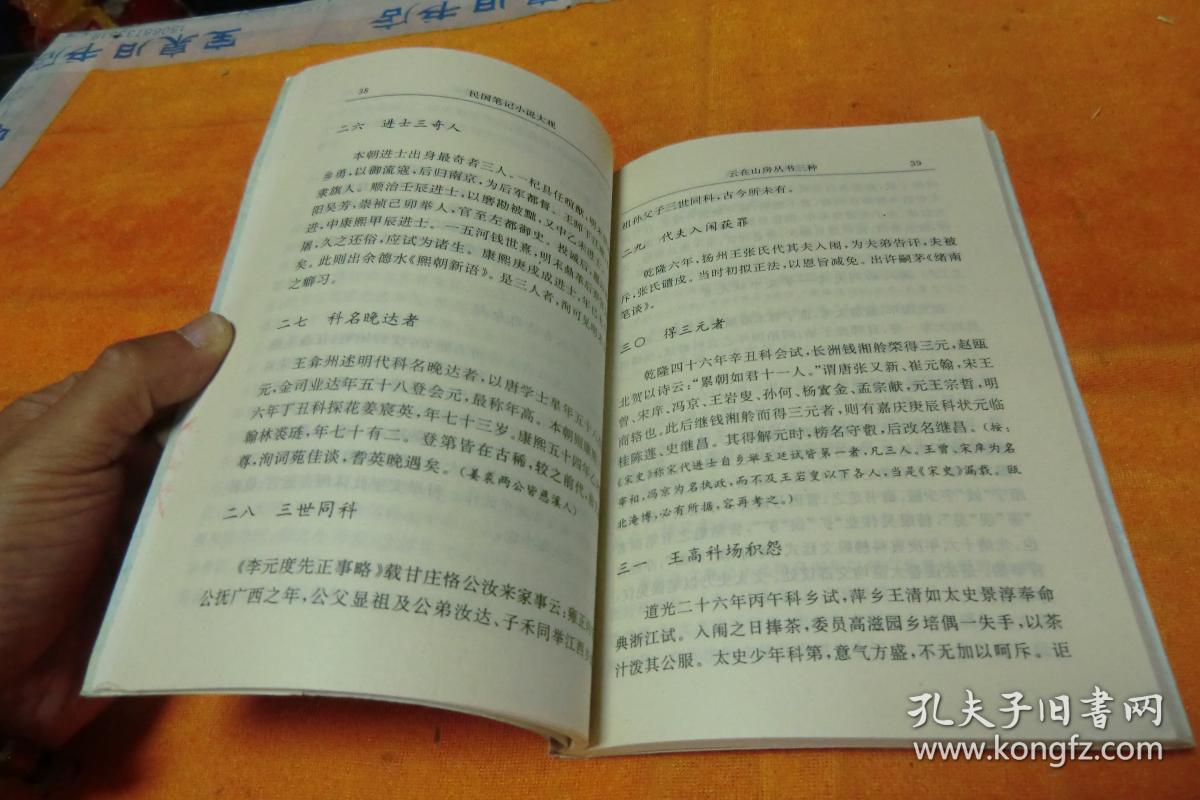 宝泉旧书店
38
民国笔记小说大观
二六 进士三奇人
本朝进士出身最奇者三人。一杞县任暄猷,明末
乡勇,以御流寇,后归南京,为后军都督。王师下江
隶旗人。顺治壬辰进士,以磨勘被黜,又中乙未进士。
阳吴芳,崇祯己卯举人,官至左都御史。投诚后,
进,中康熙甲辰进士。一五河钱世熹,明末鼎革后
屠,久之还俗,应试为诸生。康熙庚戌成进士,年已
矣。此则出余德水《熙朝新语》。是三人者,洵可见
之癖习。
二七 科名晚达者
王弇州述明代科名晚达者,以唐学士皋年五十八
元,金司业达年五十八登会元,最称年高。本朝则康熙
六年丁丑科探花姜宸英,年七十三岁。康熙五十四年乙
翰林裘琏,年七十有二。登第皆在古稀,较之前代,
尊,洵词苑佳谈,耆英晚遇矣。(姜裘两公皆慈溪人)
二八 三世同科
《李元度先正事略》载甘庄恪公汝来家事云:雍正
公抚广西之年,公父显祖及公弟汝达、子禾同举江西
云在山房丛书三种
39
祖孙父子三世同科,古今所未有。
二九 代夫入闱获罪
乾隆六年,扬州王张氏代其夫入闱,为夫弟告讦,夫被
斥,张氏谴戍。当时初拟正法,以恩旨减免。出许嗣茅《绪南
笔谈》。
三〇 得三元者
乾隆四十六年辛丑科会试,长洲钱湘舲棨得三元,赵瓯
北贺以诗云:“累朝如君十一人。”谓唐张又新、崔元翰,宋王
曾、宋庠、冯京、王岩叟、孙何、杨寘金、孟宗献,元王宗哲,明
商辂也。此后继钱湘舲而得三元者,则有嘉庆庚辰科状元临
桂陈莲、史继昌。其得解元时,榜名守叡,后改名继昌。(按:
《宋史》称宋代进士自乡举至廷试皆第一者,凡三人、王曾、宋庠为名
宰相,冯京为名执政,而不及王岩叟以下各人,当是《宋史》漏载。瓯
北淹博,必有所据,容再考之。)
三一 王高科场积怨
道光二十六年丙午科乡试,萍乡王清如太史景淳奉命
典浙江试。入闱之日捧茶,委员高滋园乡培偶一失手,以茶
汁泼其公服。太史少年科第,意气方盛,不无加以呵斥。讵
孔夫子旧書网
www.kongfz.com